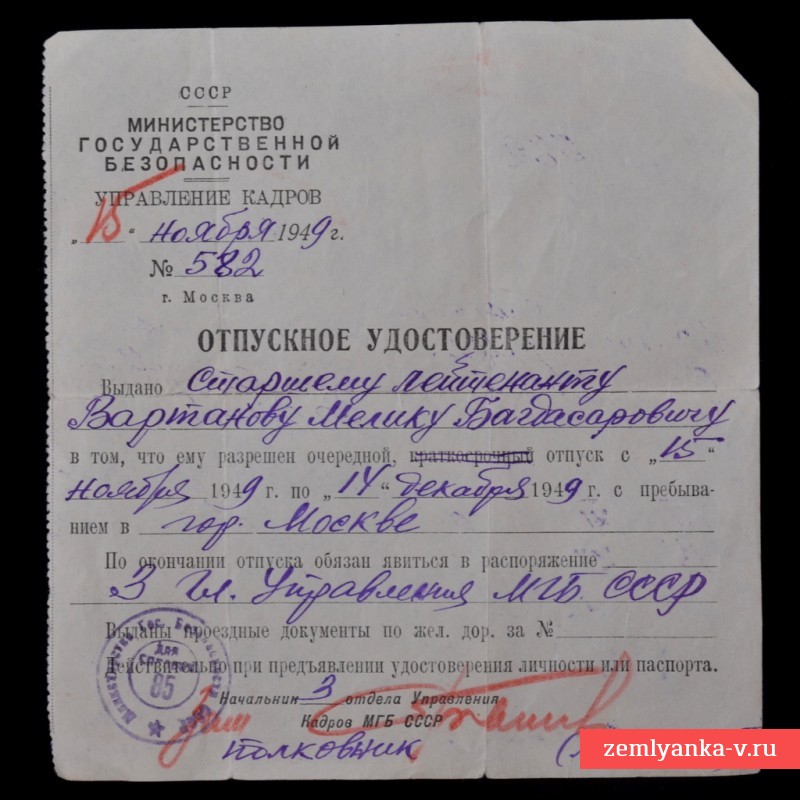 СССР
МИНИСТЕРСТВО
ГОСУДАРСТВЕННОЙ
БЕЗОПАСНОСТИ
УПРАВЛЕНИЕ КАДРОВ
„15“ ноября 1949 г.
№ 582
г. Москва
ОТПУСКНОЕ УДОСТОВЕРЕНИЕ
Выдано Старшему лейтенанту
Вартанову Мелику Багдасаровичу
в том, что ему разрешен очередной, краткосрочный отпуск с „15“
ноября 1949 г. по „14“ декабря 1949 г. с пребыва-
нием в гор. Москве
По окончании отпуска обязан явиться в распоряжение
3 Гл. Управления МГБ СССР
Выданы проездные документы по жел. дор. за №
Действительно при предъявлении удостоверения личности или паспорта.
Начальник 3 отдела Управления
Кадров МГБ СССР
полковник
Министерство Гос. Безопасности
Для
85
zemlyanka-v.ru